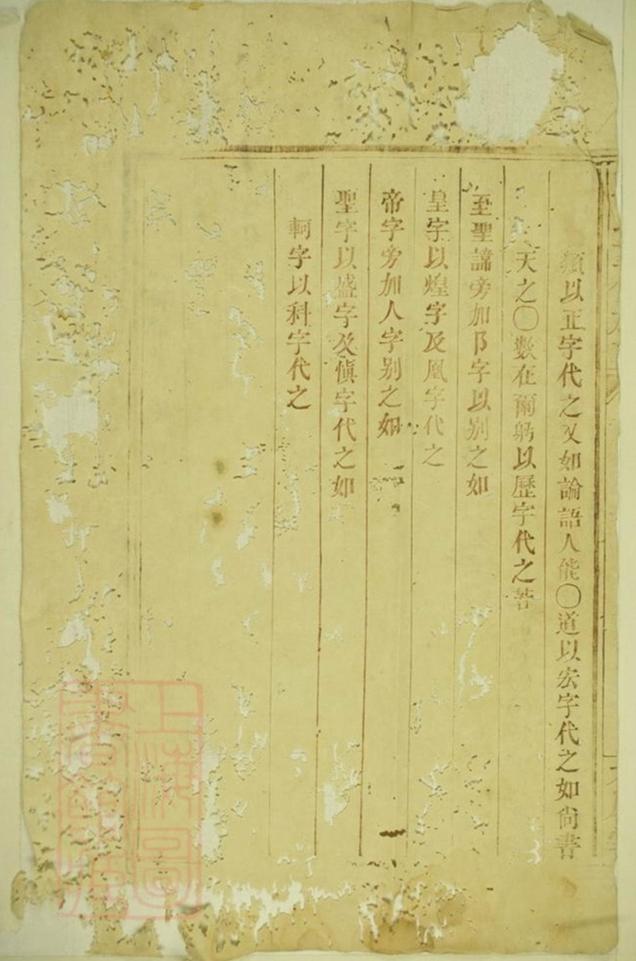 類以正字代之又如論語人能〇道以宏字代之如尚書
天之〇數在爾躬以歷字代之若
至聖諱旁加阝字以别之如
皇字以煌字及凰字代之
帝字旁加人字别之如
聖字以盛字及愼字代之如
軻字以科字代之
上海圖書館藏